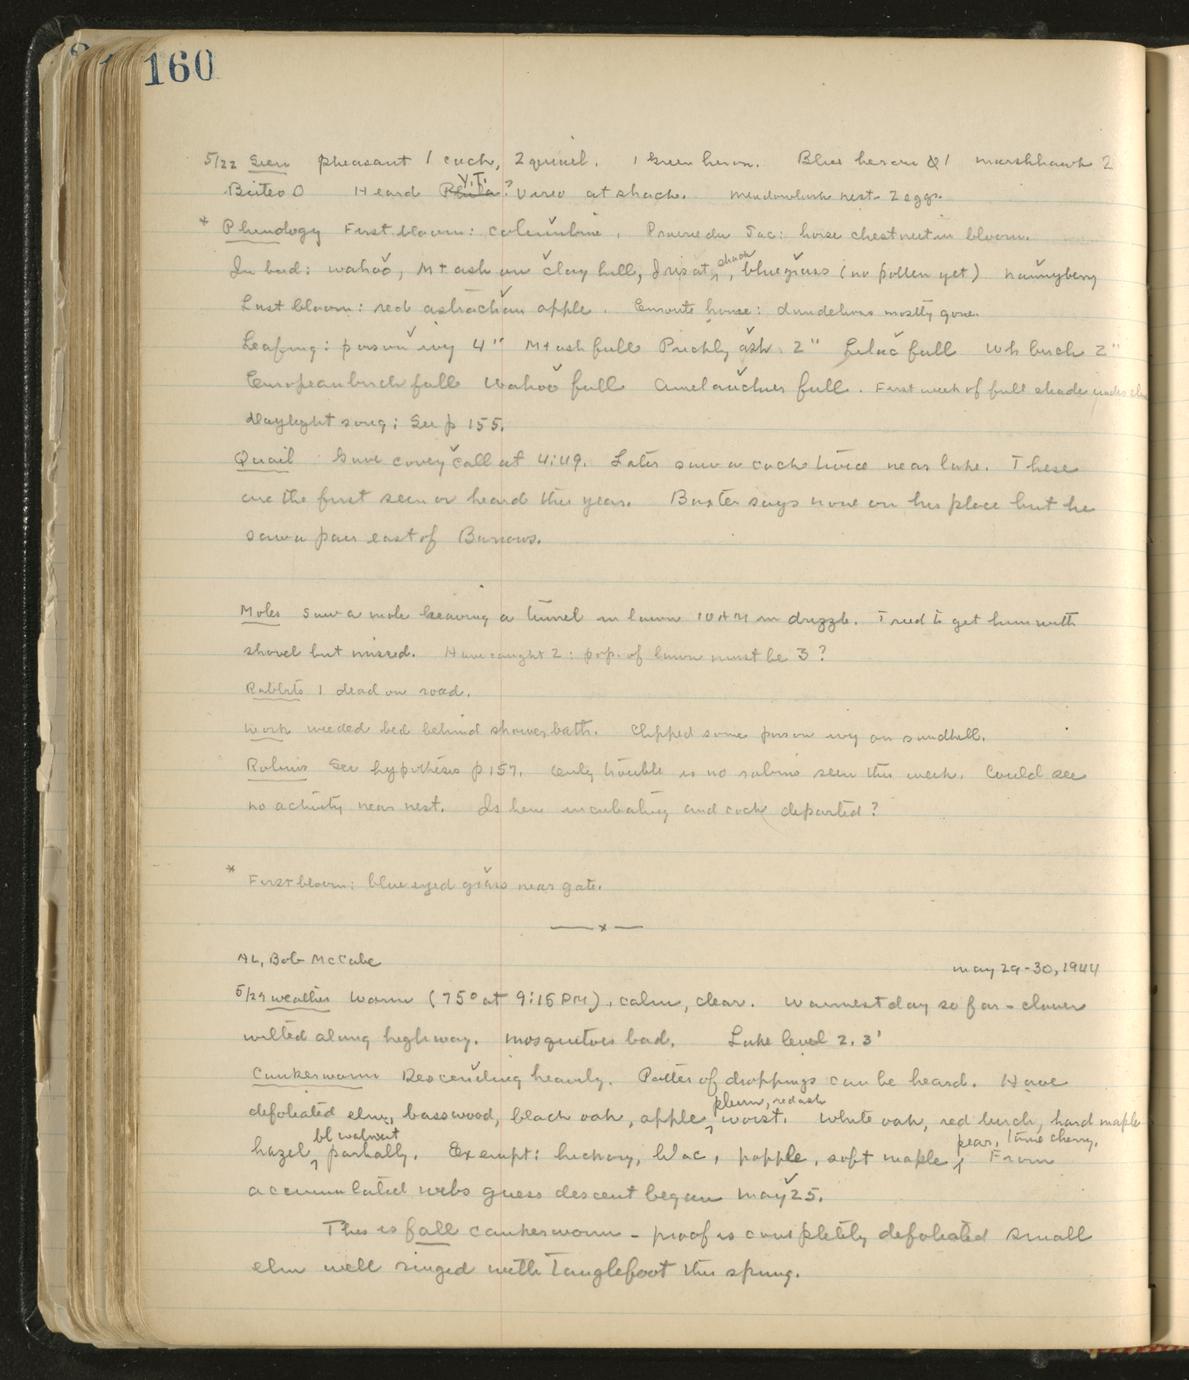 160
5/22 Seen pheasant 1 cock, 2 quail. 1 Green heron. Blue heron 1 marshhawk 2
Buteo 0 Heard Y.T.? Vireo at shack. Meadowlark nest - 2 eggs.
* Phenology First bloom: columbine. Prairie du Sac: horse chestnut in bloom.
In bud: wahoo, Mt ash on clay hill, Iris at shack, bluegrass (no pollen yet) nannyberry
Last bloom: red astrachan apple. Enroute home: dandelions mostly gone.
Leafing: poison ivy 4" Mt ash full Prickly ash 2" Lilac full Wh birch 2"
European birch full Wahoo full Amelanchier full. First week of full shade under elms
Daylight song: See p 155.
Quail Gave covey call at 4:49. Later saw a cock twice near lake. These
are the first seen or heard this year. Baxter says none on his place but he
saw a pair east of Barrows.
Moles Saw a mole heaving a tunnel in lawn 10 AM in drizzle. Tried to get him with
shovel but missed. Have caught 2: pop. of lawn must be 3?
Rabbits 1 dead on road.
Work weeded bed behind shower bath. Clipped some poison ivy on sandhill.
Robins See hypothesis p 157. Only trouble is no robins seen this week. Could see
no activity near nest. Is hen incubating and cock departed?
* First bloom: blue eyed grass near gate.
— x —
AL, Bob McCabe May 29-30, 1944
5/29 weather Warm (75° at 9:15 PM), calm, clear. Warmest day so far - clover
wilted along highway. Mosquitoes bad. Lake level 2.3'
Cankerworm Descending heavily. Patter of droppings can be heard. Have
defoliated elm, basswood, black oak, apple, plum, red ash worst. White oak, red birch, hard maple
hazel, bl walnut partially. Exempt: hickory, lilac, popple, soft maple, pear, choke cherry. From
accumulated webs guess descent began May 25.
This is fall cankerworm - proof is completely defoliated small
elm well ringed with Tanglefoot this spring.